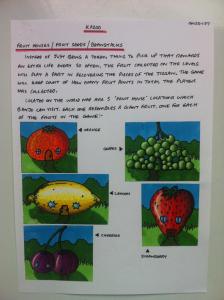 KAZOO
FRUIT HOUSES / FRUIT SEEDS / BEANSTALKS
INSTEAD OF JUST BEING A TOKEN THING TO PICK UP THAT REWARDS
AN EXTRA LIFE EVERY SO OFTEN, THE FRUIT COLLECTED ON THE LEVELS
WILL PLAY A PART IN RECOVERING THE PIECES OF THE JIGSAW. THE GAME
WILL KEEP COUNT OF HOW MANY FRUIT POINTS IN TOTAL THE PLAYER
HAS COLLECTED.
LOCATED ON THE WORLD MAP ARE 5 'FRUIT HOUSE' LOCATIONS WHICH
BANJO CAN VISIT. EACH ONE RESEMBLES A GIANT FRUIT, ONE FOR EACH
OF THE FRUITS IN THE GAME:-
ORANGE
GRAPES
LEMONS
CHERRIES
STRAWBERRY